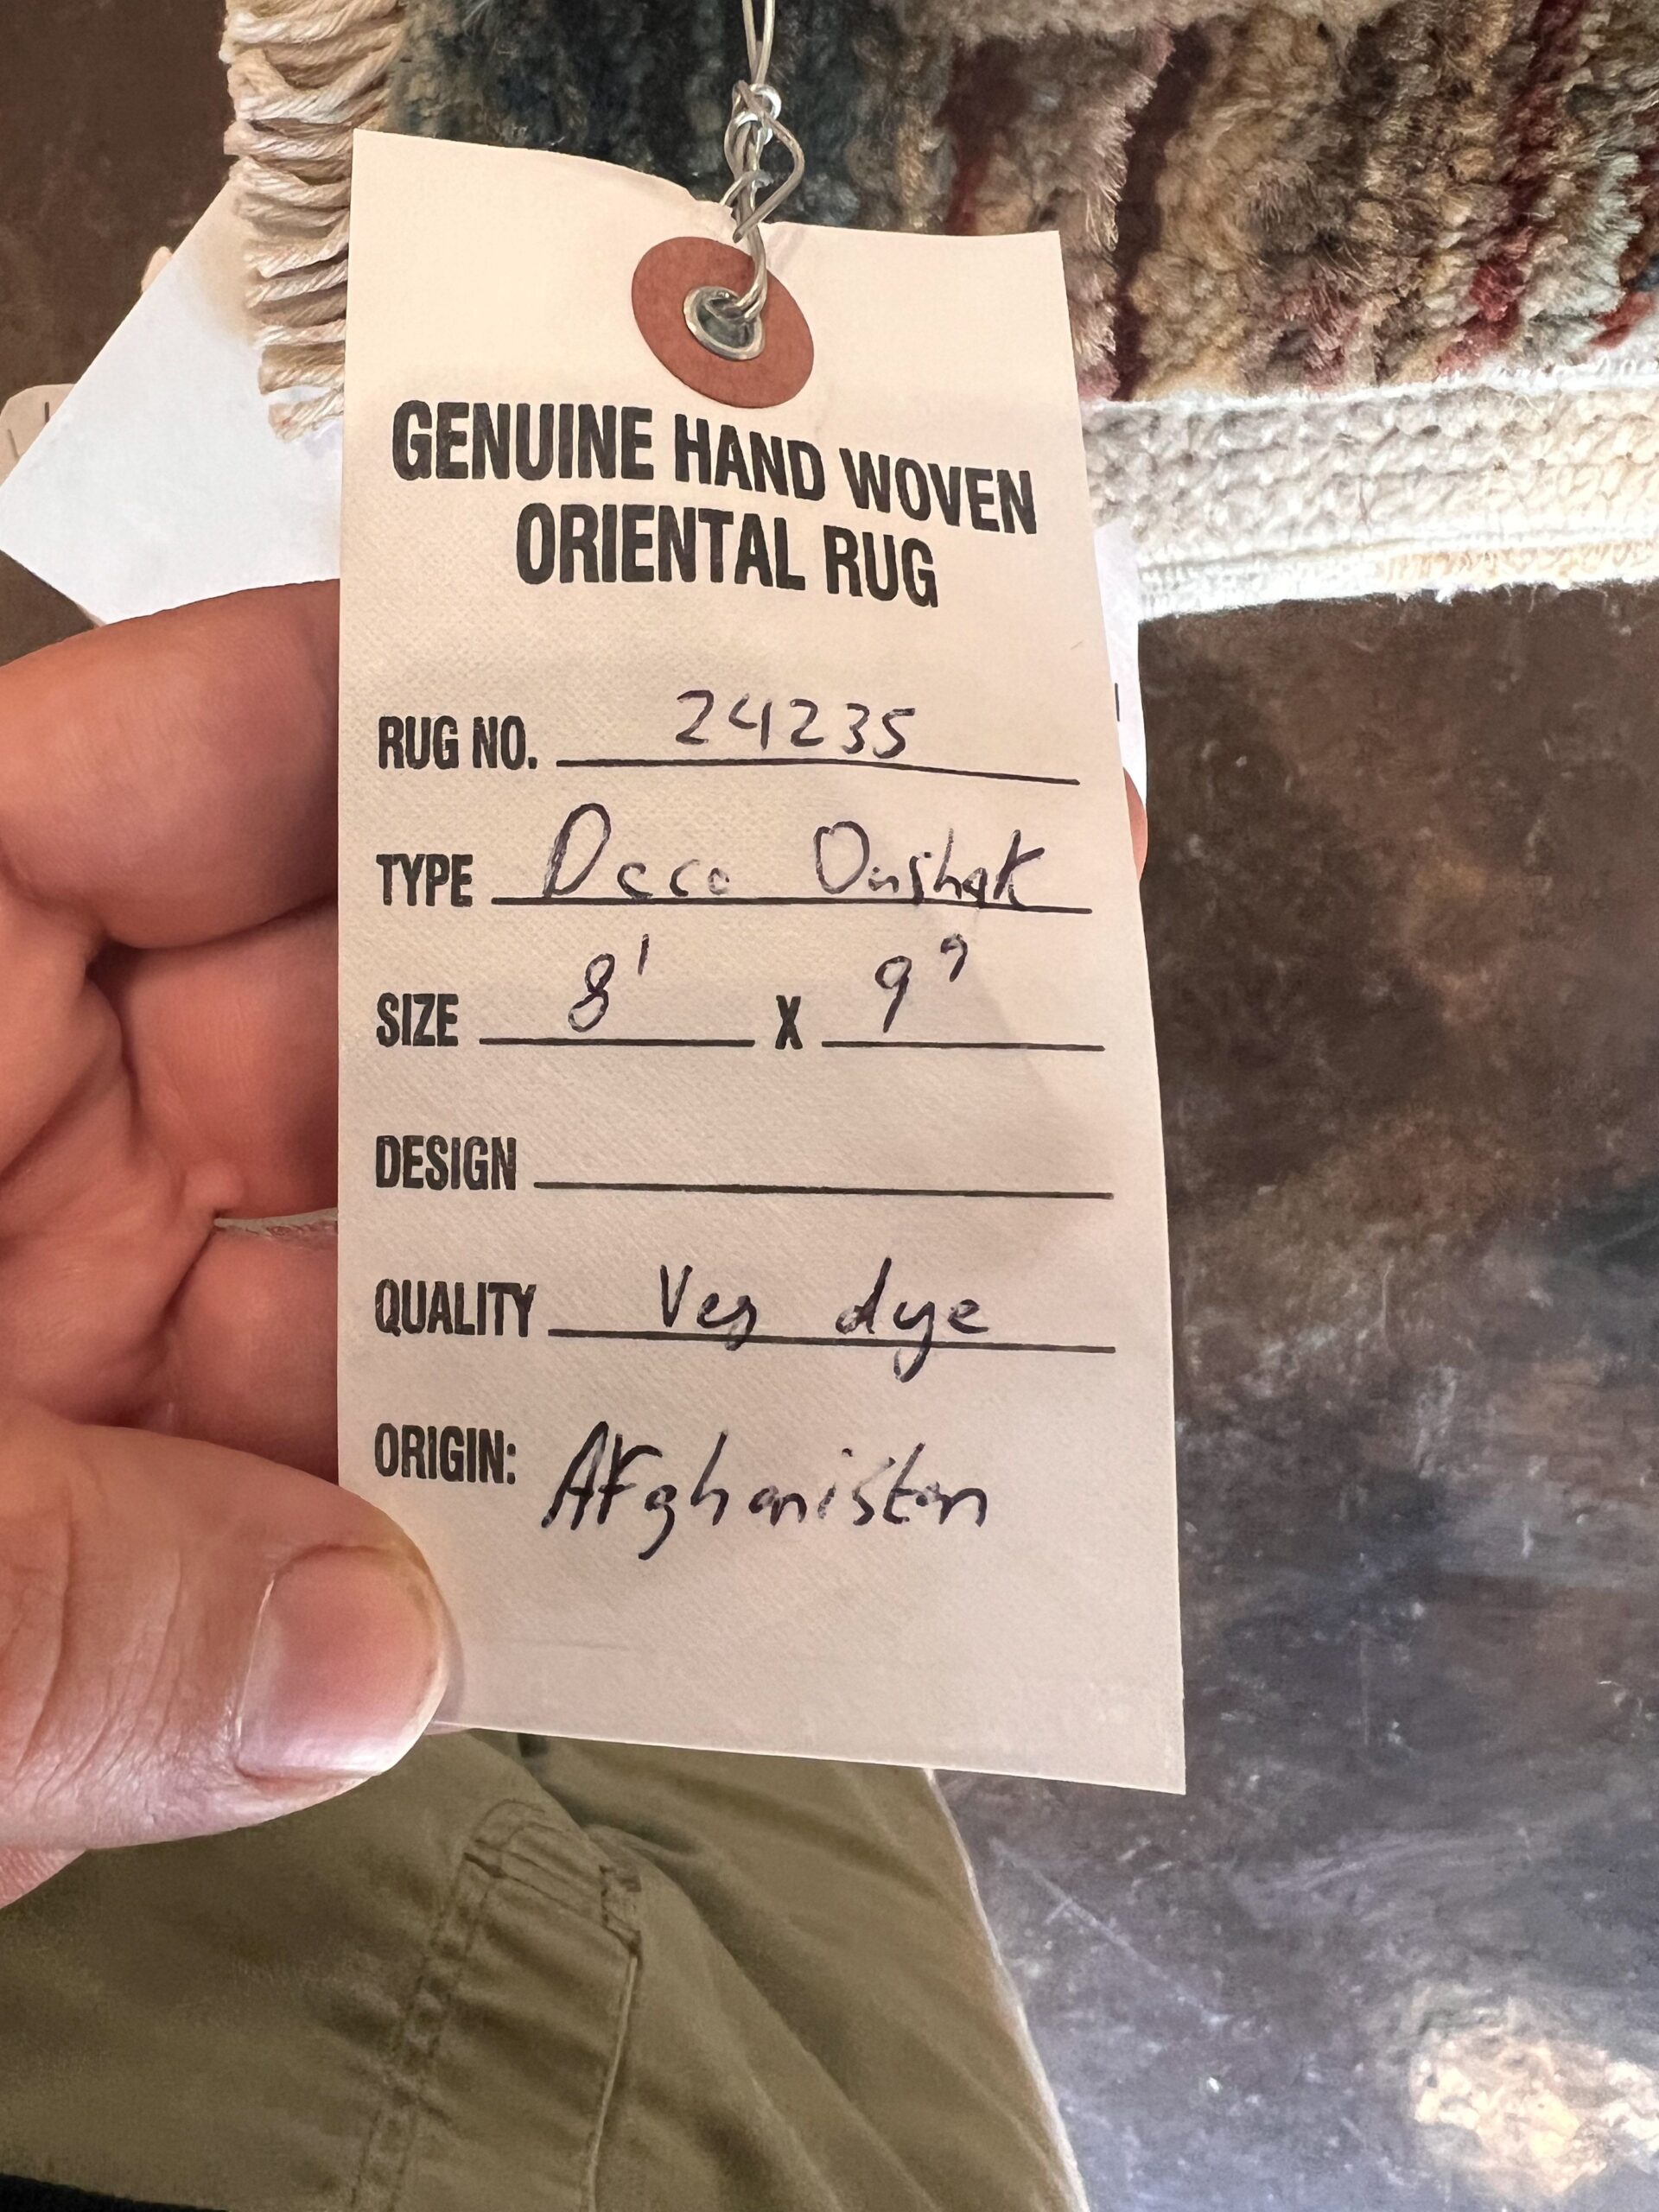 GENUINE HAND WOVEN
ORIENTAL RUG
RUG NO. 24235
TYPE Deco Oushak
SIZE 8' X 9 9
DESIGN
QUALITY Veg dye
ORIGIN: Afghanistan